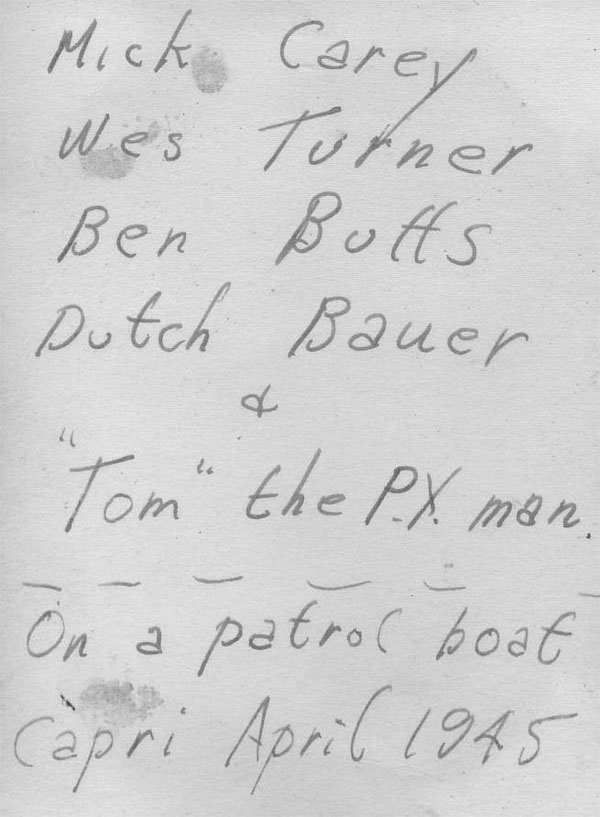 Mick Carey
Wes Turner
Ben Butts
Dutch Bauer
&
"Tom" the P.X. man.
— — — — — —
On a patrol boat
Capri April 1945